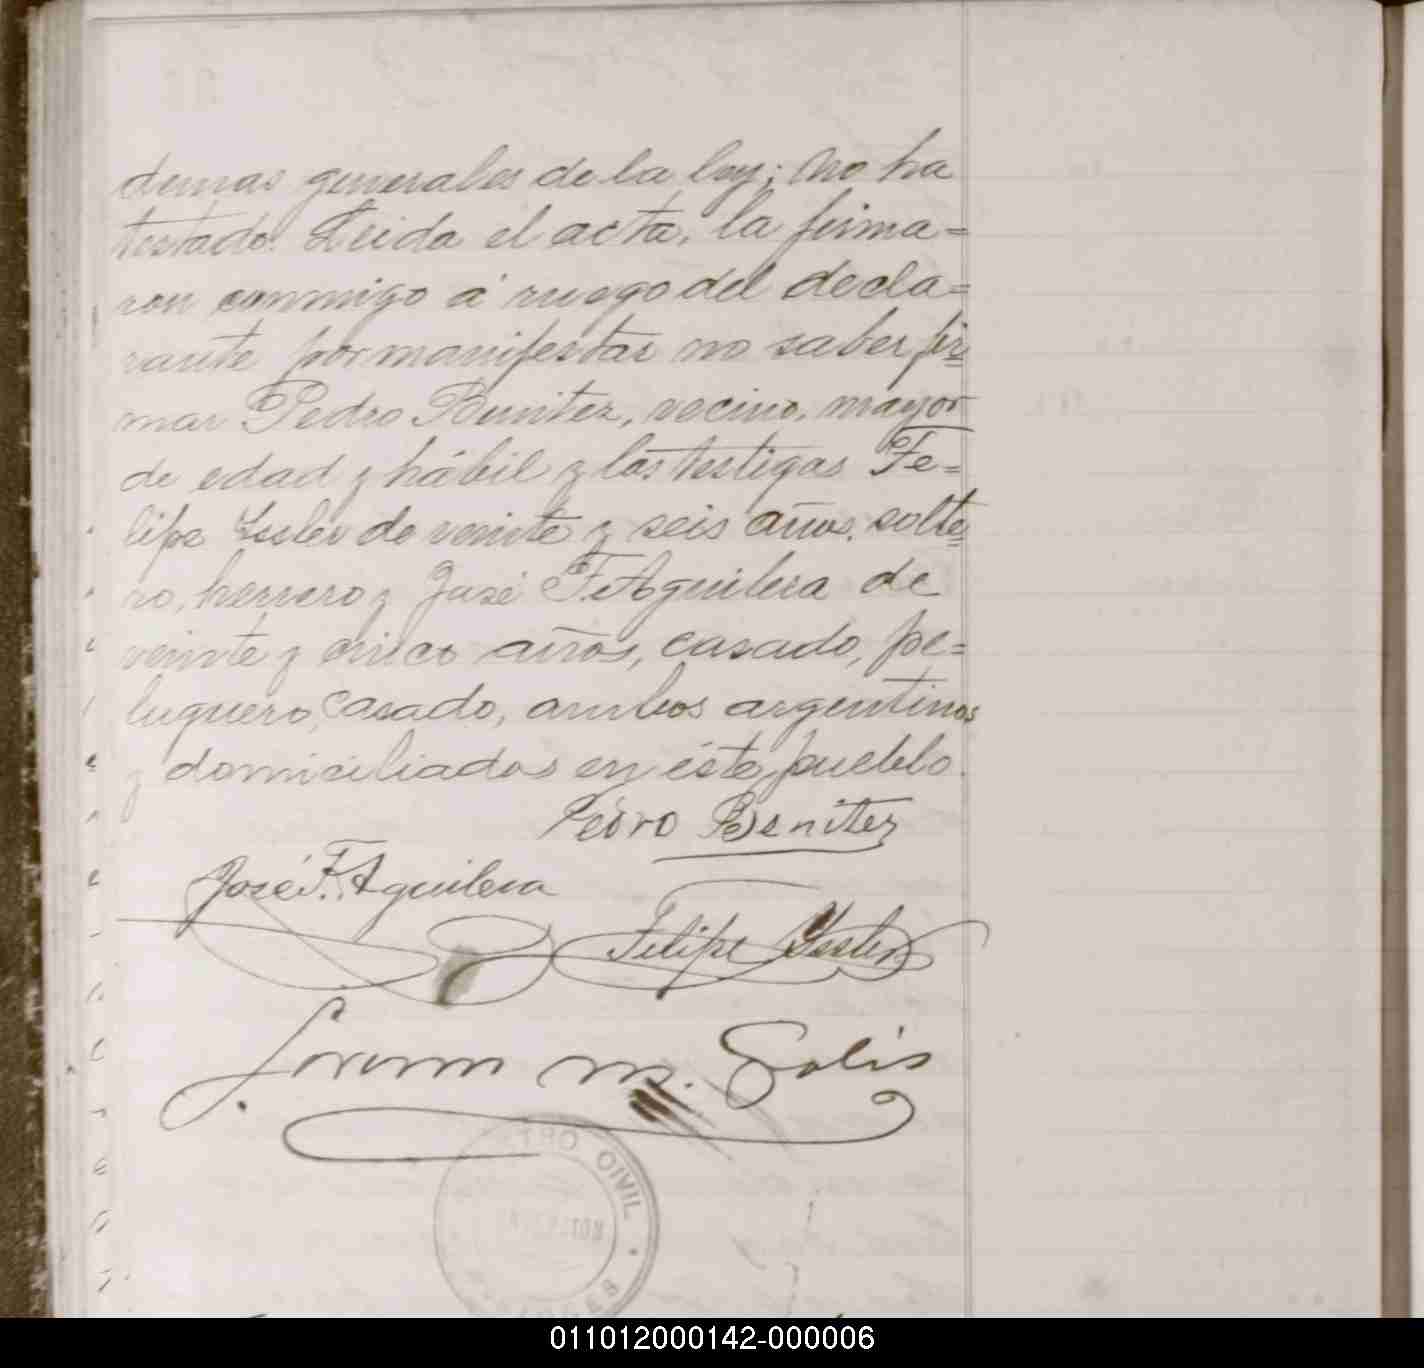 demas generales de la ley; No ha
testado. Leida el acta, la firma=
ron conmigo á ruego del decla=
rante por manifestar no saber fir=
mar Pedro Benitez, vecino, mayor
de edad y hábil y los testigos Fe=
lipe Yssler de veinte y seis años, solte=
ro, herrero y José F. Aguilera de
veinte y cinco años, casado, pe=
luquero, casado, ambos argentinos
y domiciliados en éste pueblo.
Pedro Benitez
José F. Aguilera
Felipe Yssler
m. Solis
CIVIL
011012000142-000006